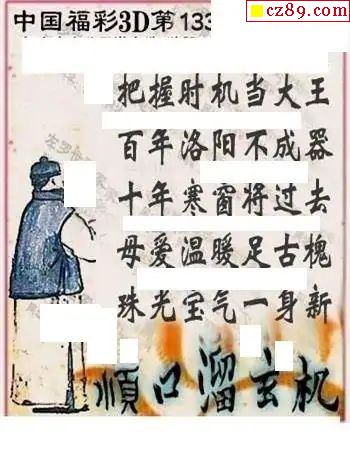 cz89.com
中国福彩3D第133
把握时机当大王
百年洛阳不成器
十年寒窗将过去
母爱温暖足古槐
珠光宝气一身新
顺口溜玄机